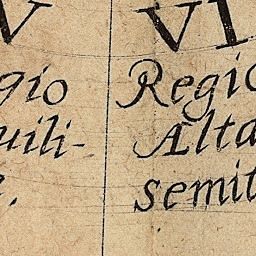 V VI
gio Regio
uili- Alta
e. semit